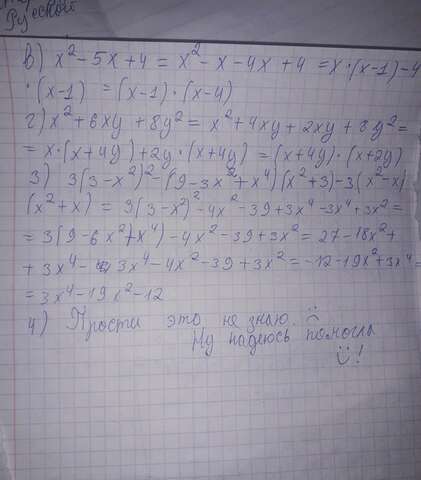 Русской
в) x² - 5x + 4 = x² - x - 4x + 4 = x·(x-1) - 4
·(x-1) = (x-1)·(x-4)
г) x² + 6xy + 8y² = x² + 4xy + 2xy + 8y² =
= x·(x+4y) + 2y·(x+4y) = (x+4y)·(x+2y)
3) 3(3-x²)² - (9-3x²+x⁴)(x²+3) - 3(x²-x)
(x²+x) = 3(3-x²)² - 4x² - 39 + 3x⁴ - 3x⁴ + 3x² =
= 3(9-6x²+x⁴) - 4x² - 39 + 3x² = 27 - 18x² +
+ 3x⁴ - 3x⁴ - 4x² - 39 + 3x² = -12 - 19x² + 3x⁴ =
= 3x⁴ - 19x² - 12
4) Прости это не знаю.
Ну надеюсь помогла
!